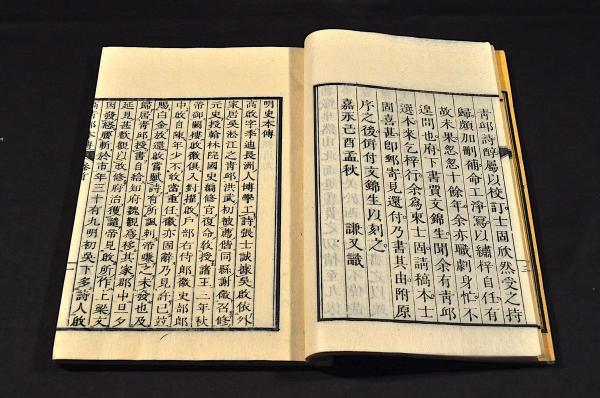 青邱詩醇屬以校訂士固欣然受之持
歸頗加刪補命工淨寫以繡梓自任有
故未果忽忽十餘年余亦職劇身忙不
遑問也府下書賈文錦生聞余有青邱
選本來乞梓行余為東士固請稿本士
固喜甚即郵寄見還付乃書其由附原
序之後併付文錦生以刻之
嘉永己酉孟秋 謙又識
明史本傳
高啟字季迪長洲人博學工詩張士誠據吳啟依外
家居吳淞江之青邱洪武初被薦偕同縣謝徽召修
元史授翰林院國史編修官復命教授諸王二年秋
帝御闕樓啟徽俱入對擢啟戶部右侍郎徽吏部郎
中啟自陳年少不敢當重任徽亦固辭乃見許已竝
賜白金放還啟嘗賦詩有所諷刺帝嗛之未發也及
歸居青邱授書自給知府魏觀為移其家郡中旦夕
延見甚歡觀以改修府治獲譴帝見啟所作上梁文
因發怒腰斬於市年三十有九明初吳下多詩人啟